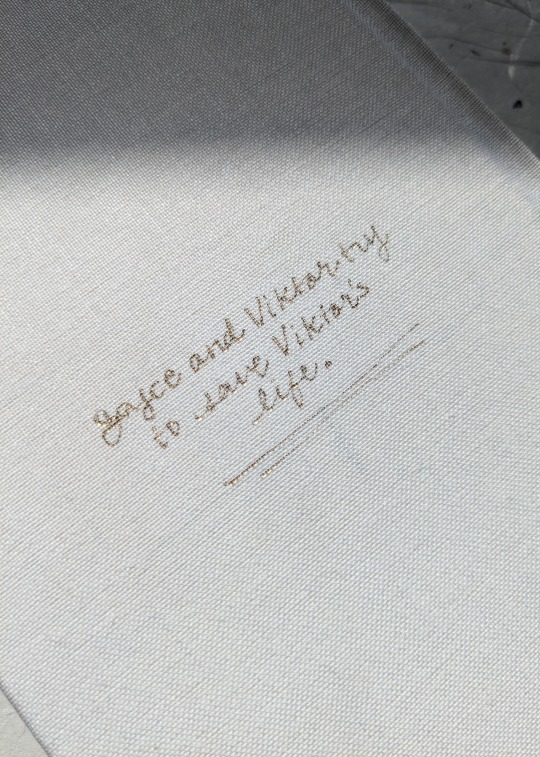 Joyce and Viktor try
to save Viktor's
life.